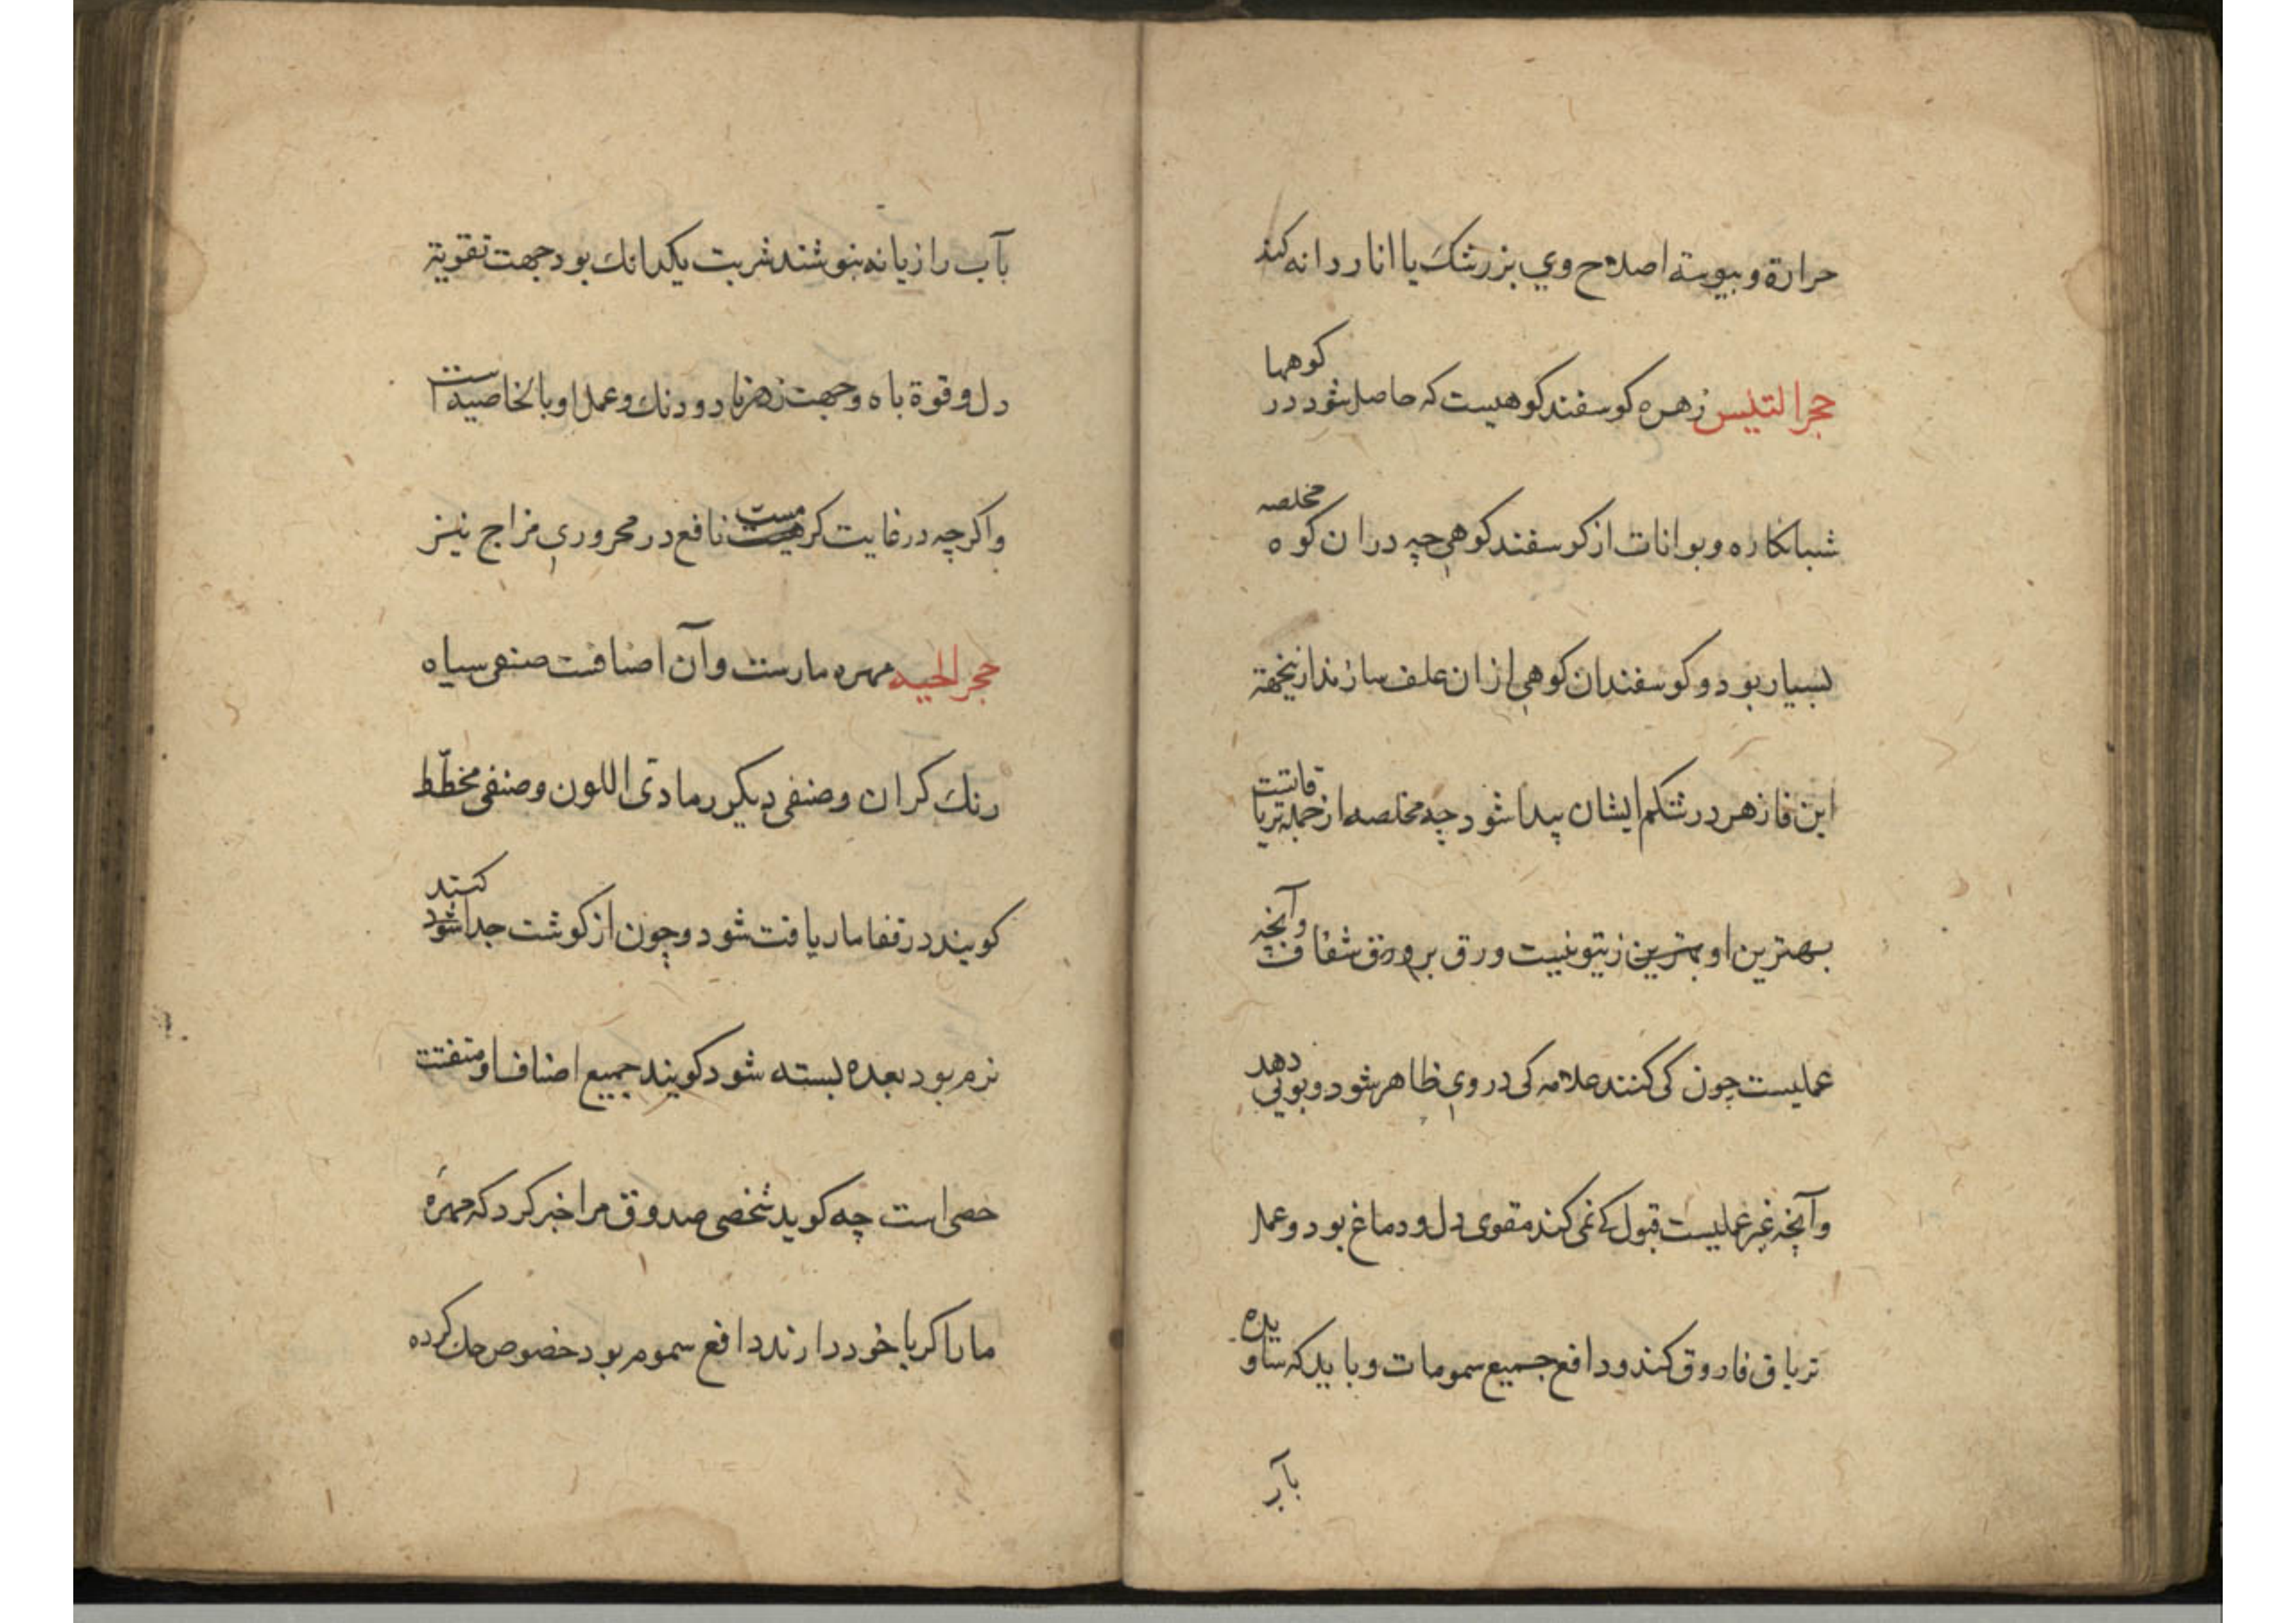 حرارة و یبوسته اصلاح وي بزرشک یا انار دانه کند
حجر التیس زهره کوسفند کوهیست که حاصل شود در کوهها
شبانکاره و بوانات از کوسفند کوهی چه در ان کوه مخلصه
بسیار بود و کوسفندان کوهی از ان علف سازند از پخته
این فازهر در شکم ایشان پیدا شود چه مخلصه از جمله تریاقاتست
بهترین او بهترین زیتونیست ورق بر ورق شفاف وآنچه
عملیست چون کی کنند علامه کی در وي ظاهر شود و بویی دهد
وآنچه غیر عملیست قبول کی نمی کند مقوی دل و دماغ بود و عمل
تریاق فاروق کند و دافع جمیع سمومات و باید که ساویده
بآب
بآب رازیانه بنوشند شربت یکدانك بود جهت تقویة
دل و قوة باه و جهت زهرها دو دنك و عمل او بالخاصیه است
واکرچه در غایت کرمیست نافع در محروري مزاج نیز
حجر الحیه مهره مارست وآن اصنافست صنفی سیاه
رنك کران و صنفی دیکر رمادی اللون و صنفی مخطّط
کویند در قفا مار یافت شود و چون از کوشت جدا کنند
نرم بود بعده بسته شود کویند جمیع اصناف او متفتت
حصی است چه کوید شخصی صدوق مرا خبر کرد که مهرهٔ
مار اکر با خود دارند دافع سموم بود خصوص حك کرده